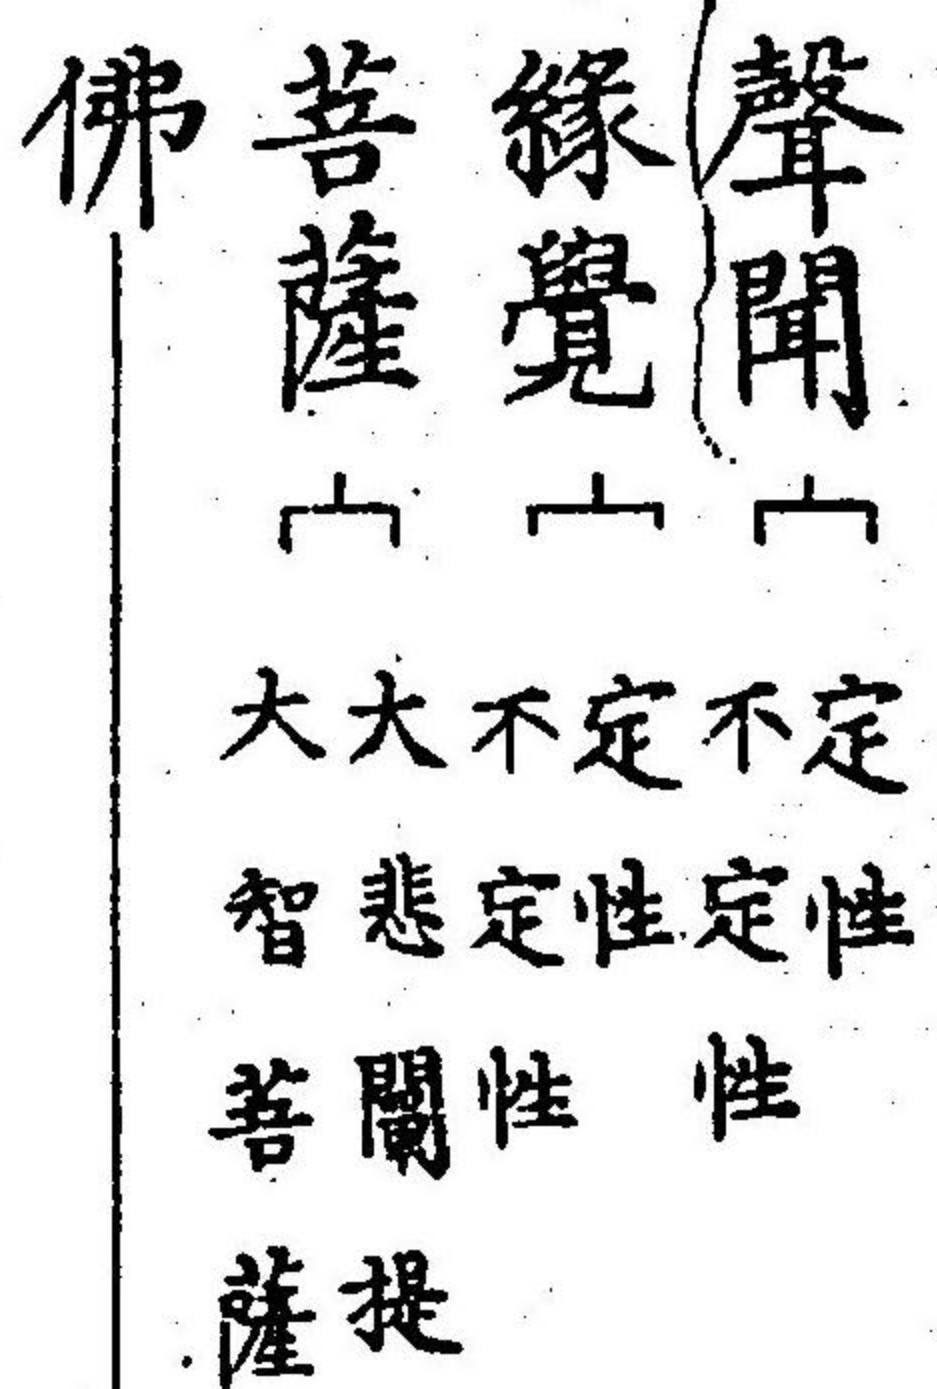 聲聞
定性
不定性
緣覺
定性
不定性
菩薩
大悲闡提
大智菩薩
佛